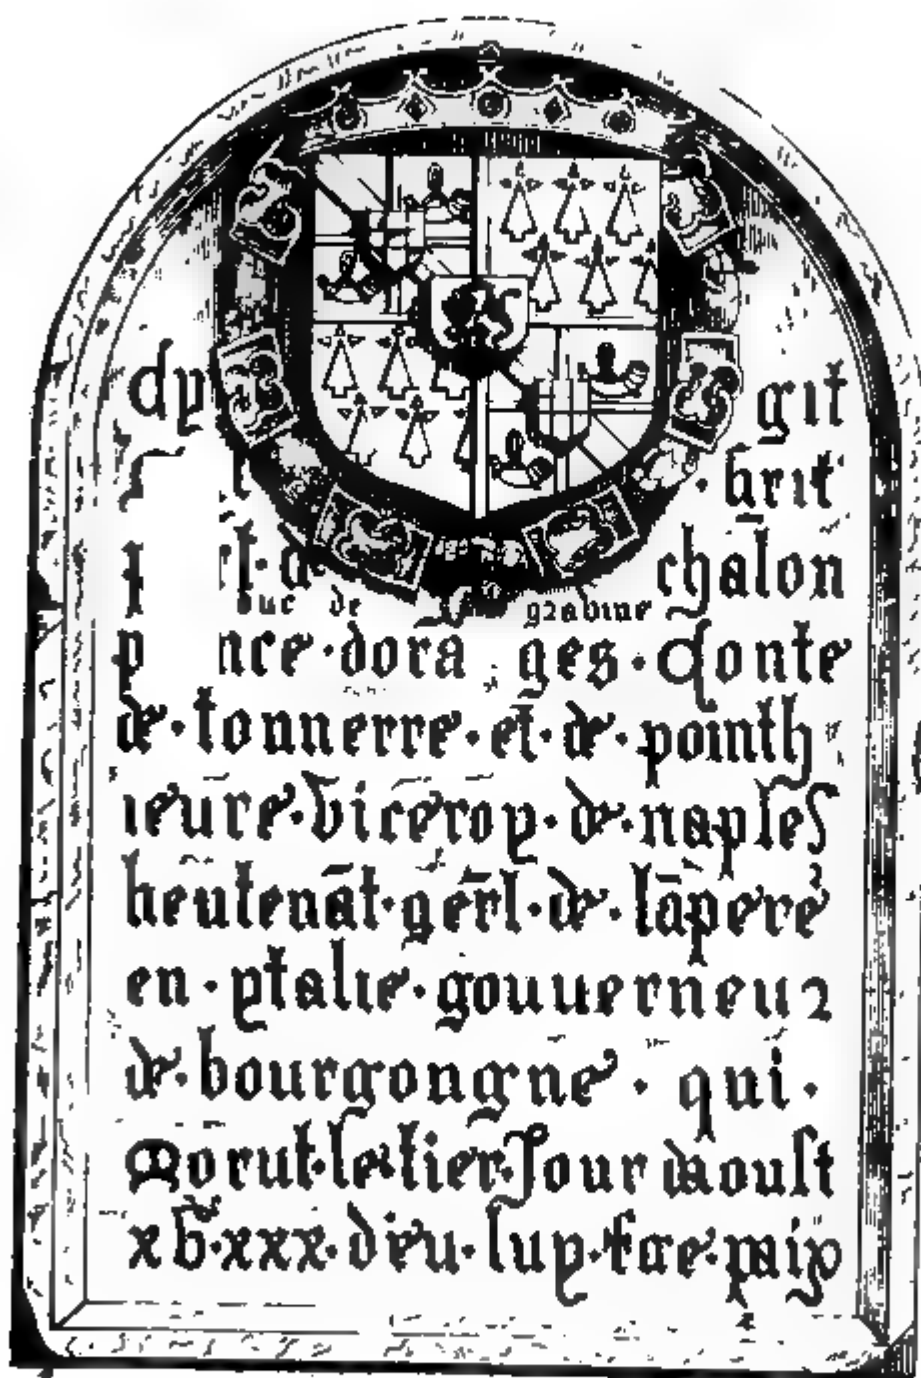 cy git
brit
chalon
duc de gravine
prince · doranges · Conte
de · tonnerre · et · de · pointh
ieure · viceroy · de · naples
lieutenāt · gēr̄l · de · lāpere
en · ytalie · gouuerneur
de · bourgongne · qui ·
Morut · le · tier · Jour daoust
xv̊ · xxx · dieu · luy · face · paix